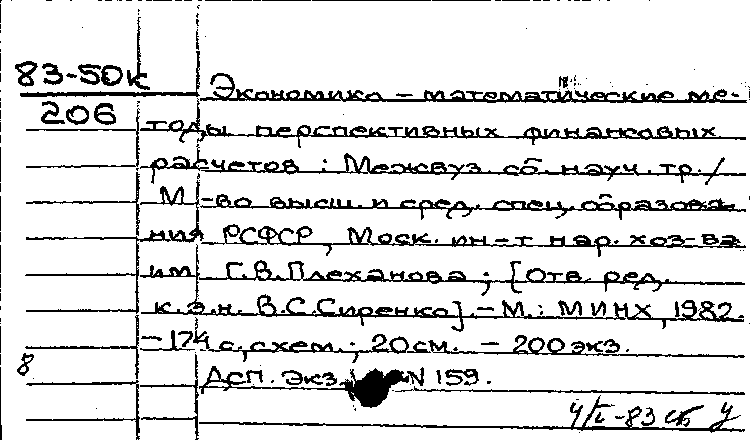 83-50к
206
Экономико-математические ме-
тоды перспективных финансовых
расчетов : Межвуз. сб. науч. тр./
М-во высш. и сред. спец. образова-
ния РСФСР, Моск. ин-т нар. хоз-ва
им. Г.В.Плеханова ; [Отв. ред.
к.э.н. В.С.Сиренко].-М.: МИНХ, 1982.
-174 с., схем. ; 20см. - 200 экз.
8
ДСП. Экз. N 159.
4/I-83